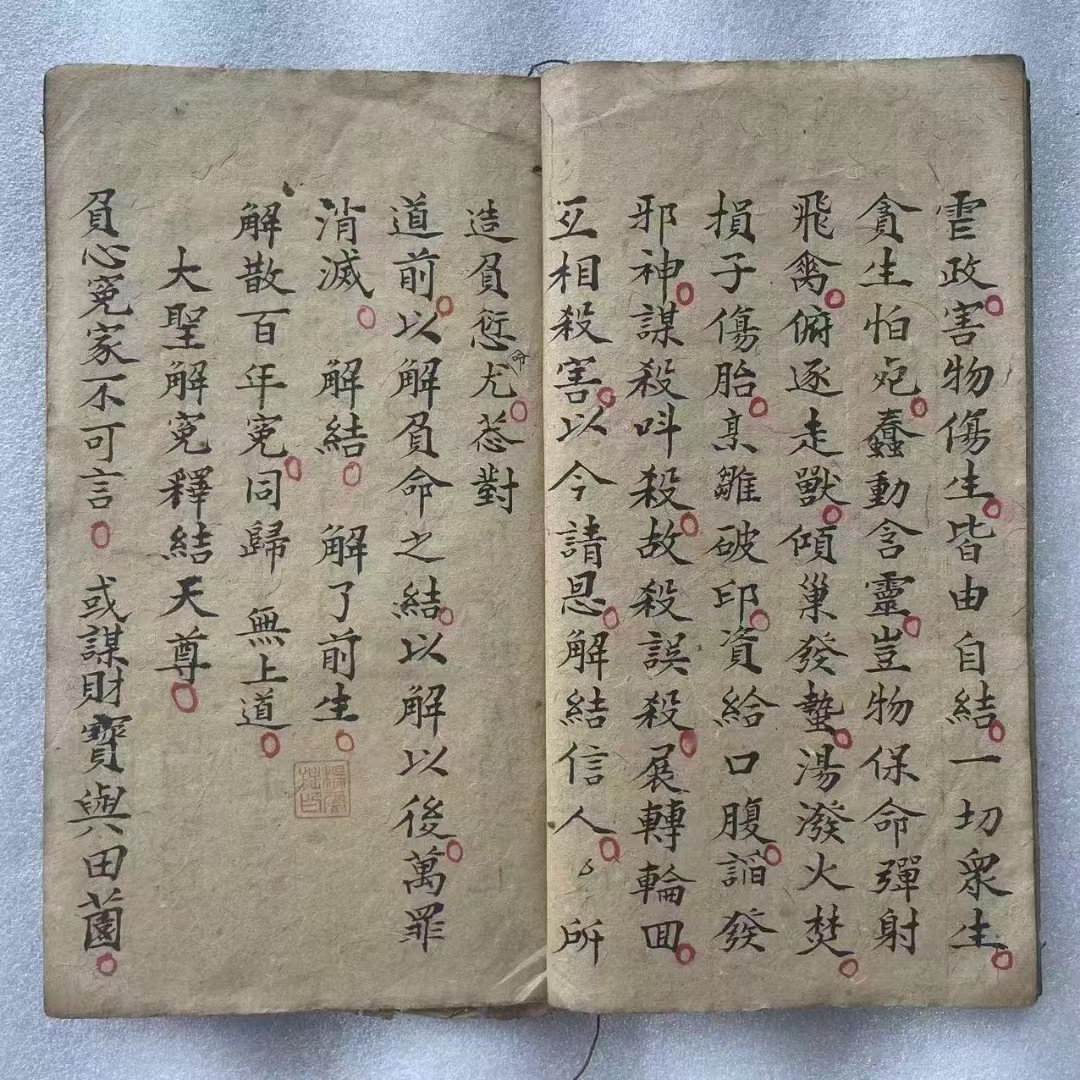 虐政害物傷生皆由自結一切衆生
貪生怕死蠢動含靈豈物保命彈射
飛禽俯逐走獸傾巢發蟄湯潑火焚
損子傷胎烹雛破印資給口腹謟發
邪神謀殺呌殺故殺誤殺展轉輪回
互相殺害以今請恩解結信人厶所
造負愆命尤荅對
道前以解負命之結以解以後萬罪
消滅 解結 解了前生
解散百年寃同歸 無上道
大聖解寃釋結天尊
負心寃家不可言 或謀財寶與田薗